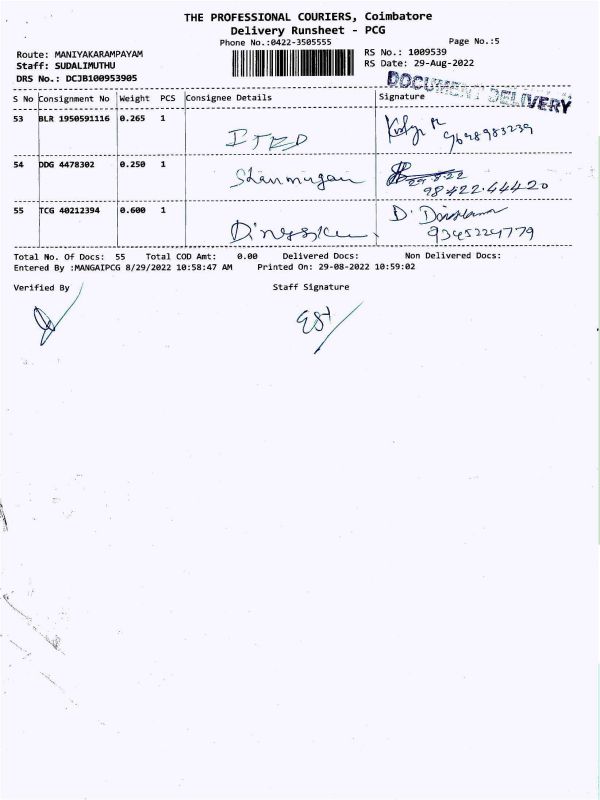 THE PROFESSIONAL COURIERS, Coimbatore
Delivery Runsheet - PCG
Phone No.:0422-3505555
Page No.:5
Route: MANIYAKARAMPAYAM
RS No.: 1009539
Staff: SUDALIMUTHU
RS Date: 29-Aug-2022
DRS No.: DCJB100953905
DOCUMENT DELIVERY
S No Consignment No Weight PCS Consignee Details Signature
53 BLR 1950591116 0.265 1
9698983239
54 DDG 4478302 0.250 1 Shanmugan
29.8.22
98422.44420
55 TCG 40212394 0.600 1 D.
9345224779
Total No. Of Docs: 55 Total COD Amt: 0.00 Delivered Docs: Non Delivered Docs:
Entered By :MANGAIPCG 8/29/2022 10:58:47 AM Printed On: 29-08-2022 10:59:02
Verified By Staff Signature